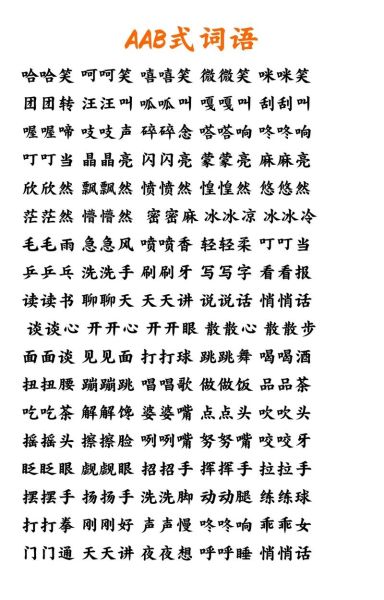 AAB式词语
哈哈笑 呵呵笑 嘻嘻笑 微微笑 咪咪笑
团团转 汪汪叫 呱呱叫 嘎嘎叫 刮刮叫
喔喔啼 吱吱声 碎碎念 嗒嗒响 咚咚响
叮叮当 晶晶亮 闪闪亮 蒙蒙亮 麻麻亮
欣欣然 飘飘然 愤愤然 惶惶然 悠悠然
茫茫然 懵懵然 密密麻 冰冰凉 冰冰冷
毛毛雨 急急风 喷喷香 轻轻柔 叮叮当
乒乒乓 洗洗手 刷刷牙 写写字 看看报
读读书 聊聊天 天天讲 说说话 悄悄话
谈谈心 开开心 开开眼 散散心 散散步
面面谈 见见面 打打球 跳跳舞 喝喝酒
扭扭腰 蹦蹦跳 唱唱歌 做做饭 品品茶
吃吃茶 解解馋 婆婆嘴 点点头 吹吹头
摇摇头 擦擦脸 咧咧嘴 努努嘴 咬咬牙
眨眨眼 觑觑眼 招招手 挥挥手 拉拉手
摆摆手 扬扬手 洗洗脚 动动腿 练练球
打打拳 刚刚好 声声慢 咚咚响 乖乖女
门门通 天天讲 夜夜想 呼呼睡 悄悄话